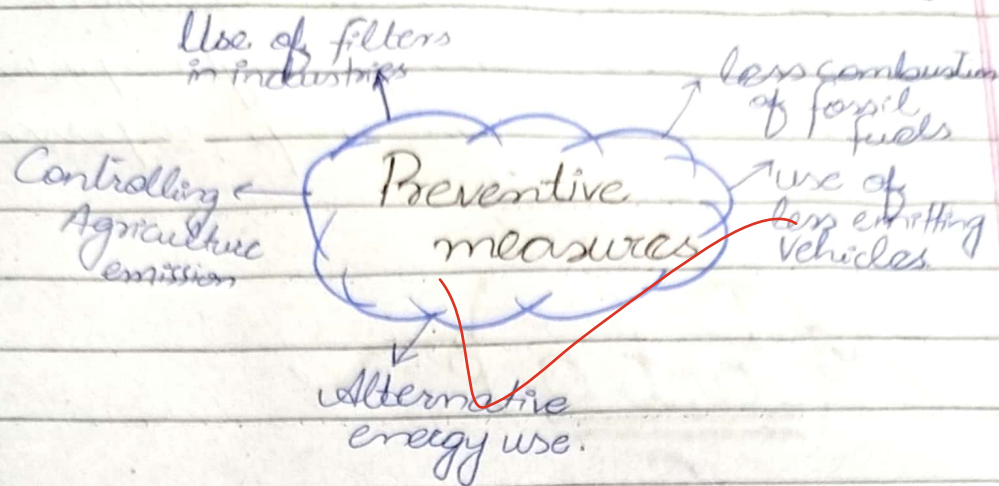 Use of filters
in industries
less combustion
of fossil
fuels
Controlling
Agriculture
emission
Preventive
measures
use of
less emitting
vehicles.
Alternative
energy use.